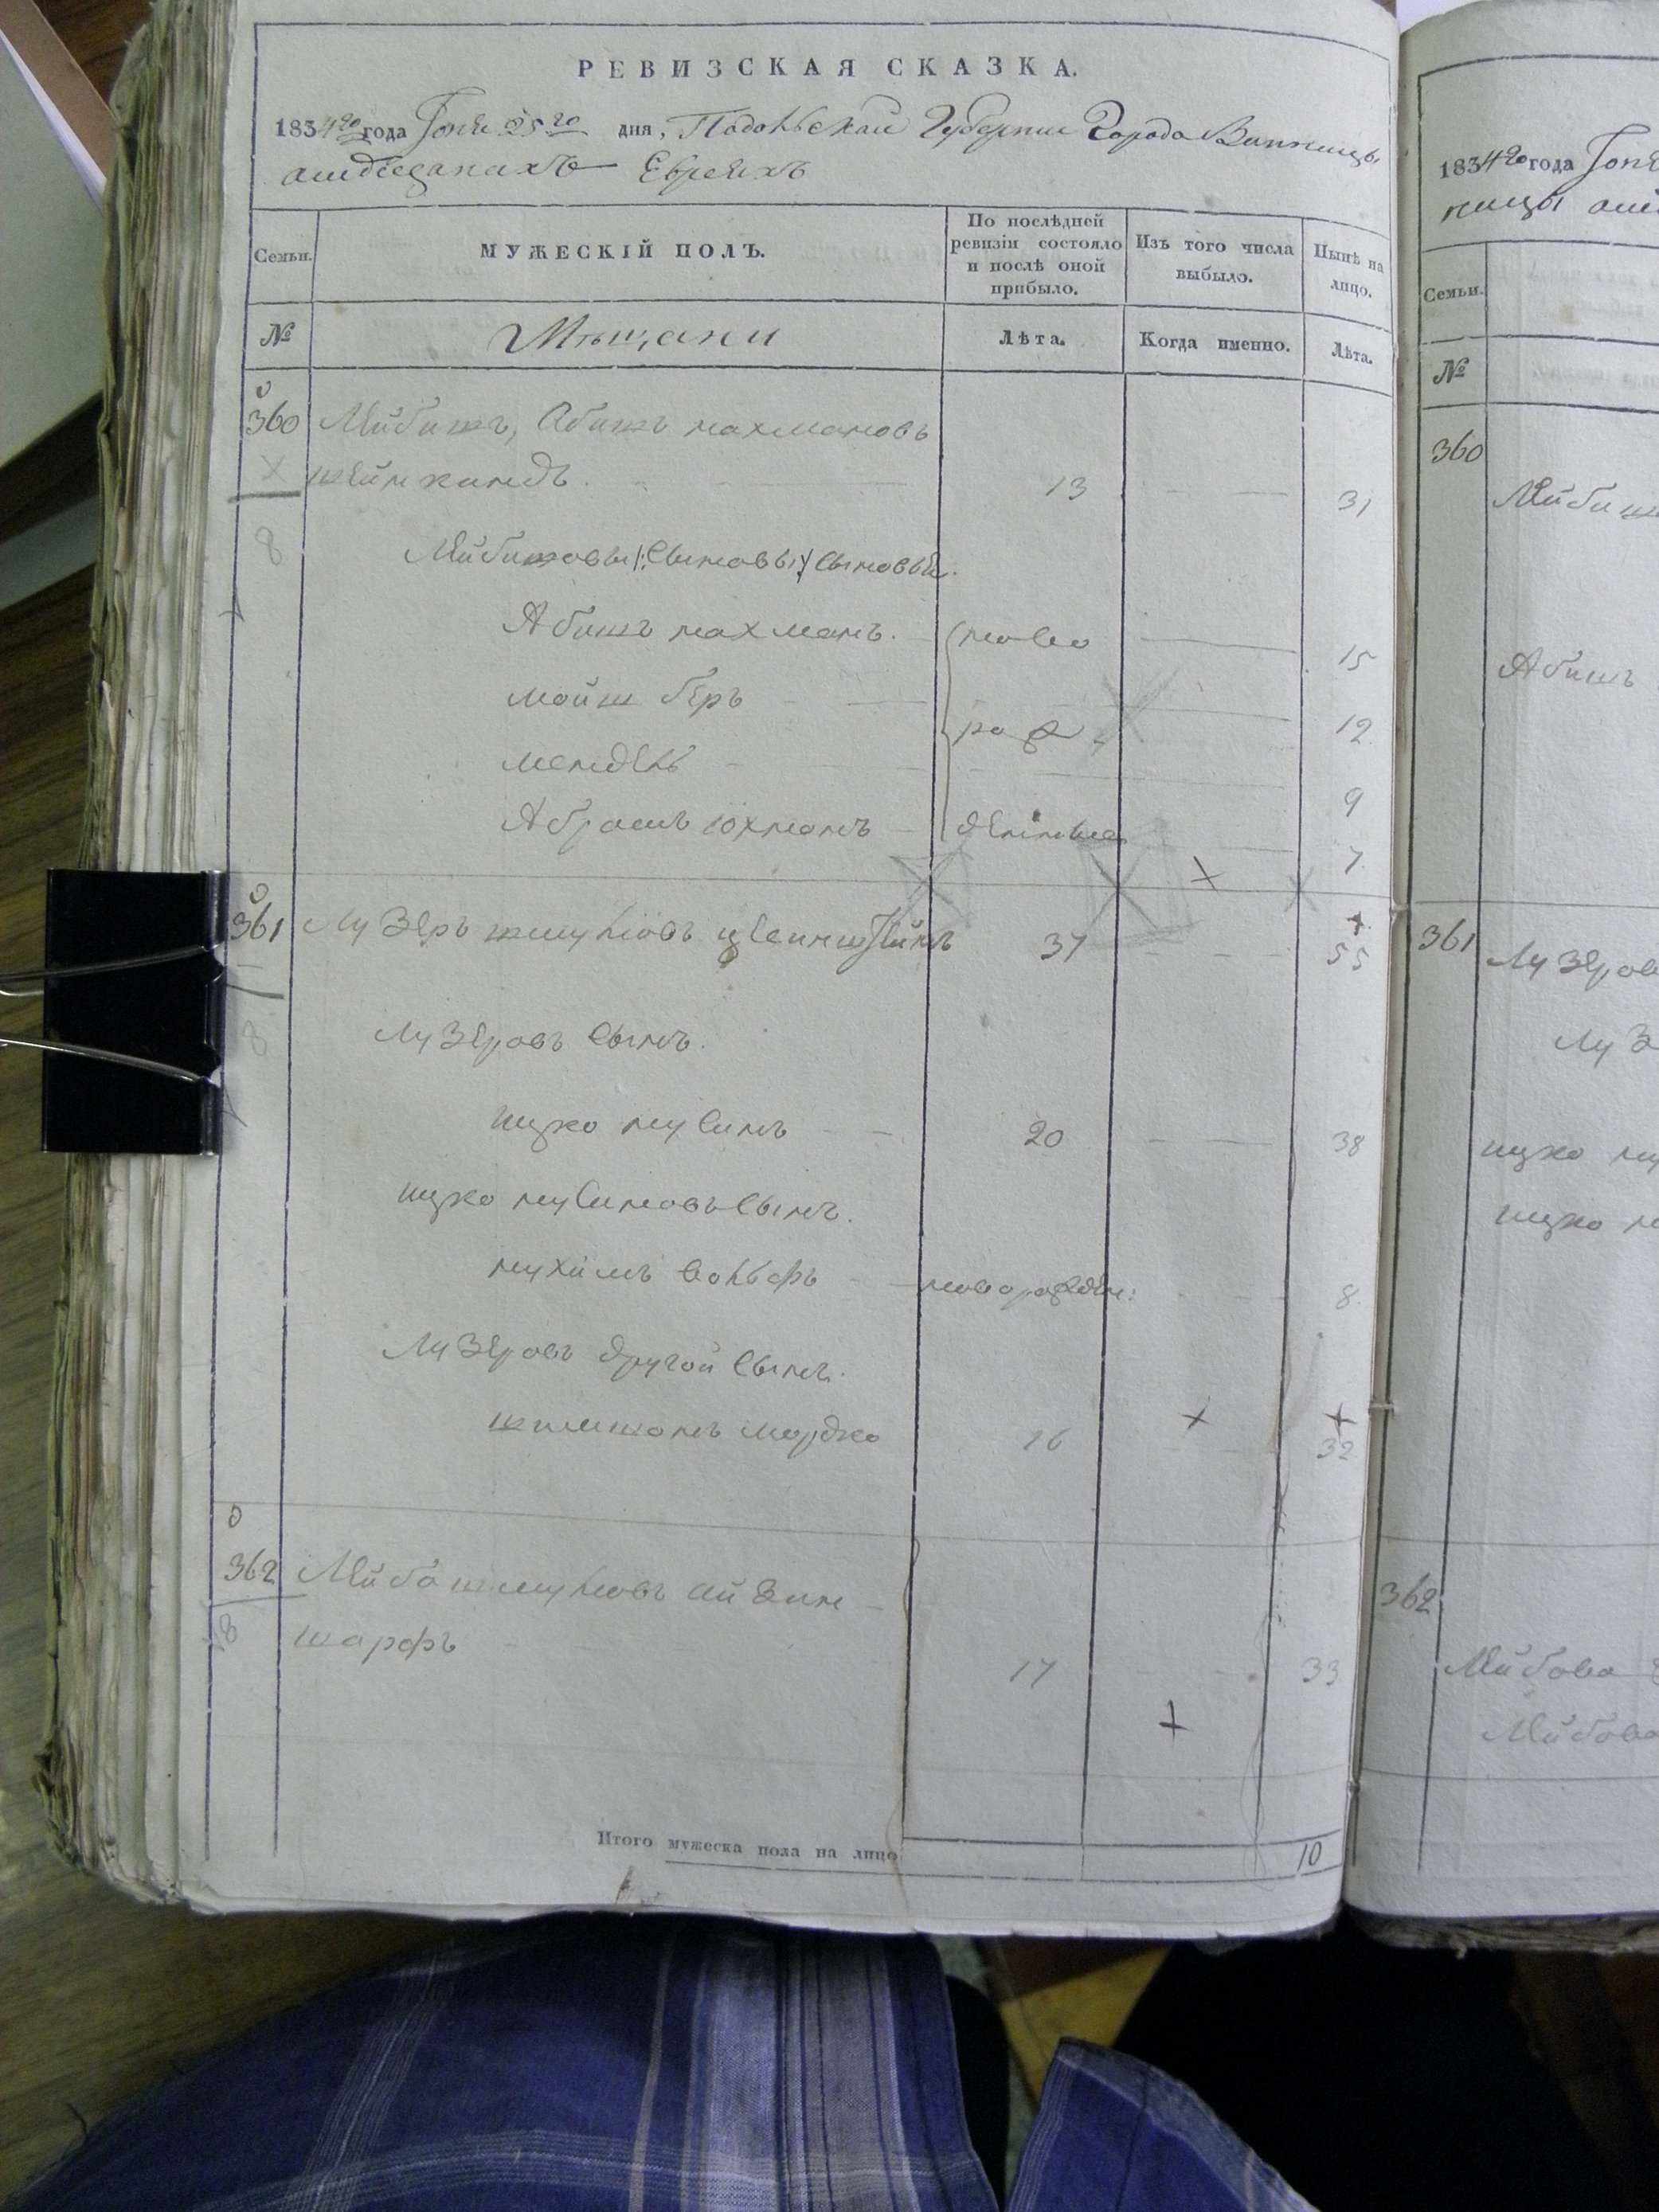 РЕВИЗСКАЯ СКАЗКА.
1834го года Іюня 25го дня, Подольской Губернии Города Винницы
о мѣщанахъ Евреяхъ
Семьи.
МУЖЕСКІЙ ПОЛЪ.
По послѣдней ревизіи состояло и послѣ оной прибыло.
Изъ того числа выбыло.
Нынѣ на лицо.
№
Мѣщани
Лѣта.
Когда именно.
Лѣта.
360 Лейбишъ, Абишъ Нахмановъ
Шейнкиндъ 13 31
8
Лейбишовы /:сыновы:/ сыновья.
Абишъ Нахманъ. ново 15
Мойш Беръ 12
рож
Мендель 9
Абрамъ Юхманъ денные 7
361 Лузеръ Шмулiовъ 37 55
8
Лузеровъ сынъ.
Ицко Нусинъ 20 38
Ицко Нусиновъ сынъ.
Нухимъ Вольфъ новорожден: 8
Лузеровъ другой сынъ.
Мордко 16 32
362 Лейба Шмулiовъ Айзин
8 шарфъ 17 33
Итого мужеска пола на лицо 10
1834го года Іюня
ницы о мѣ
Семьи.
№
360
Лейбиш
Абишъ
361
Лузеров
Луз
Ицко Ну
Ицко Н
362
Лейбова
Лейбова